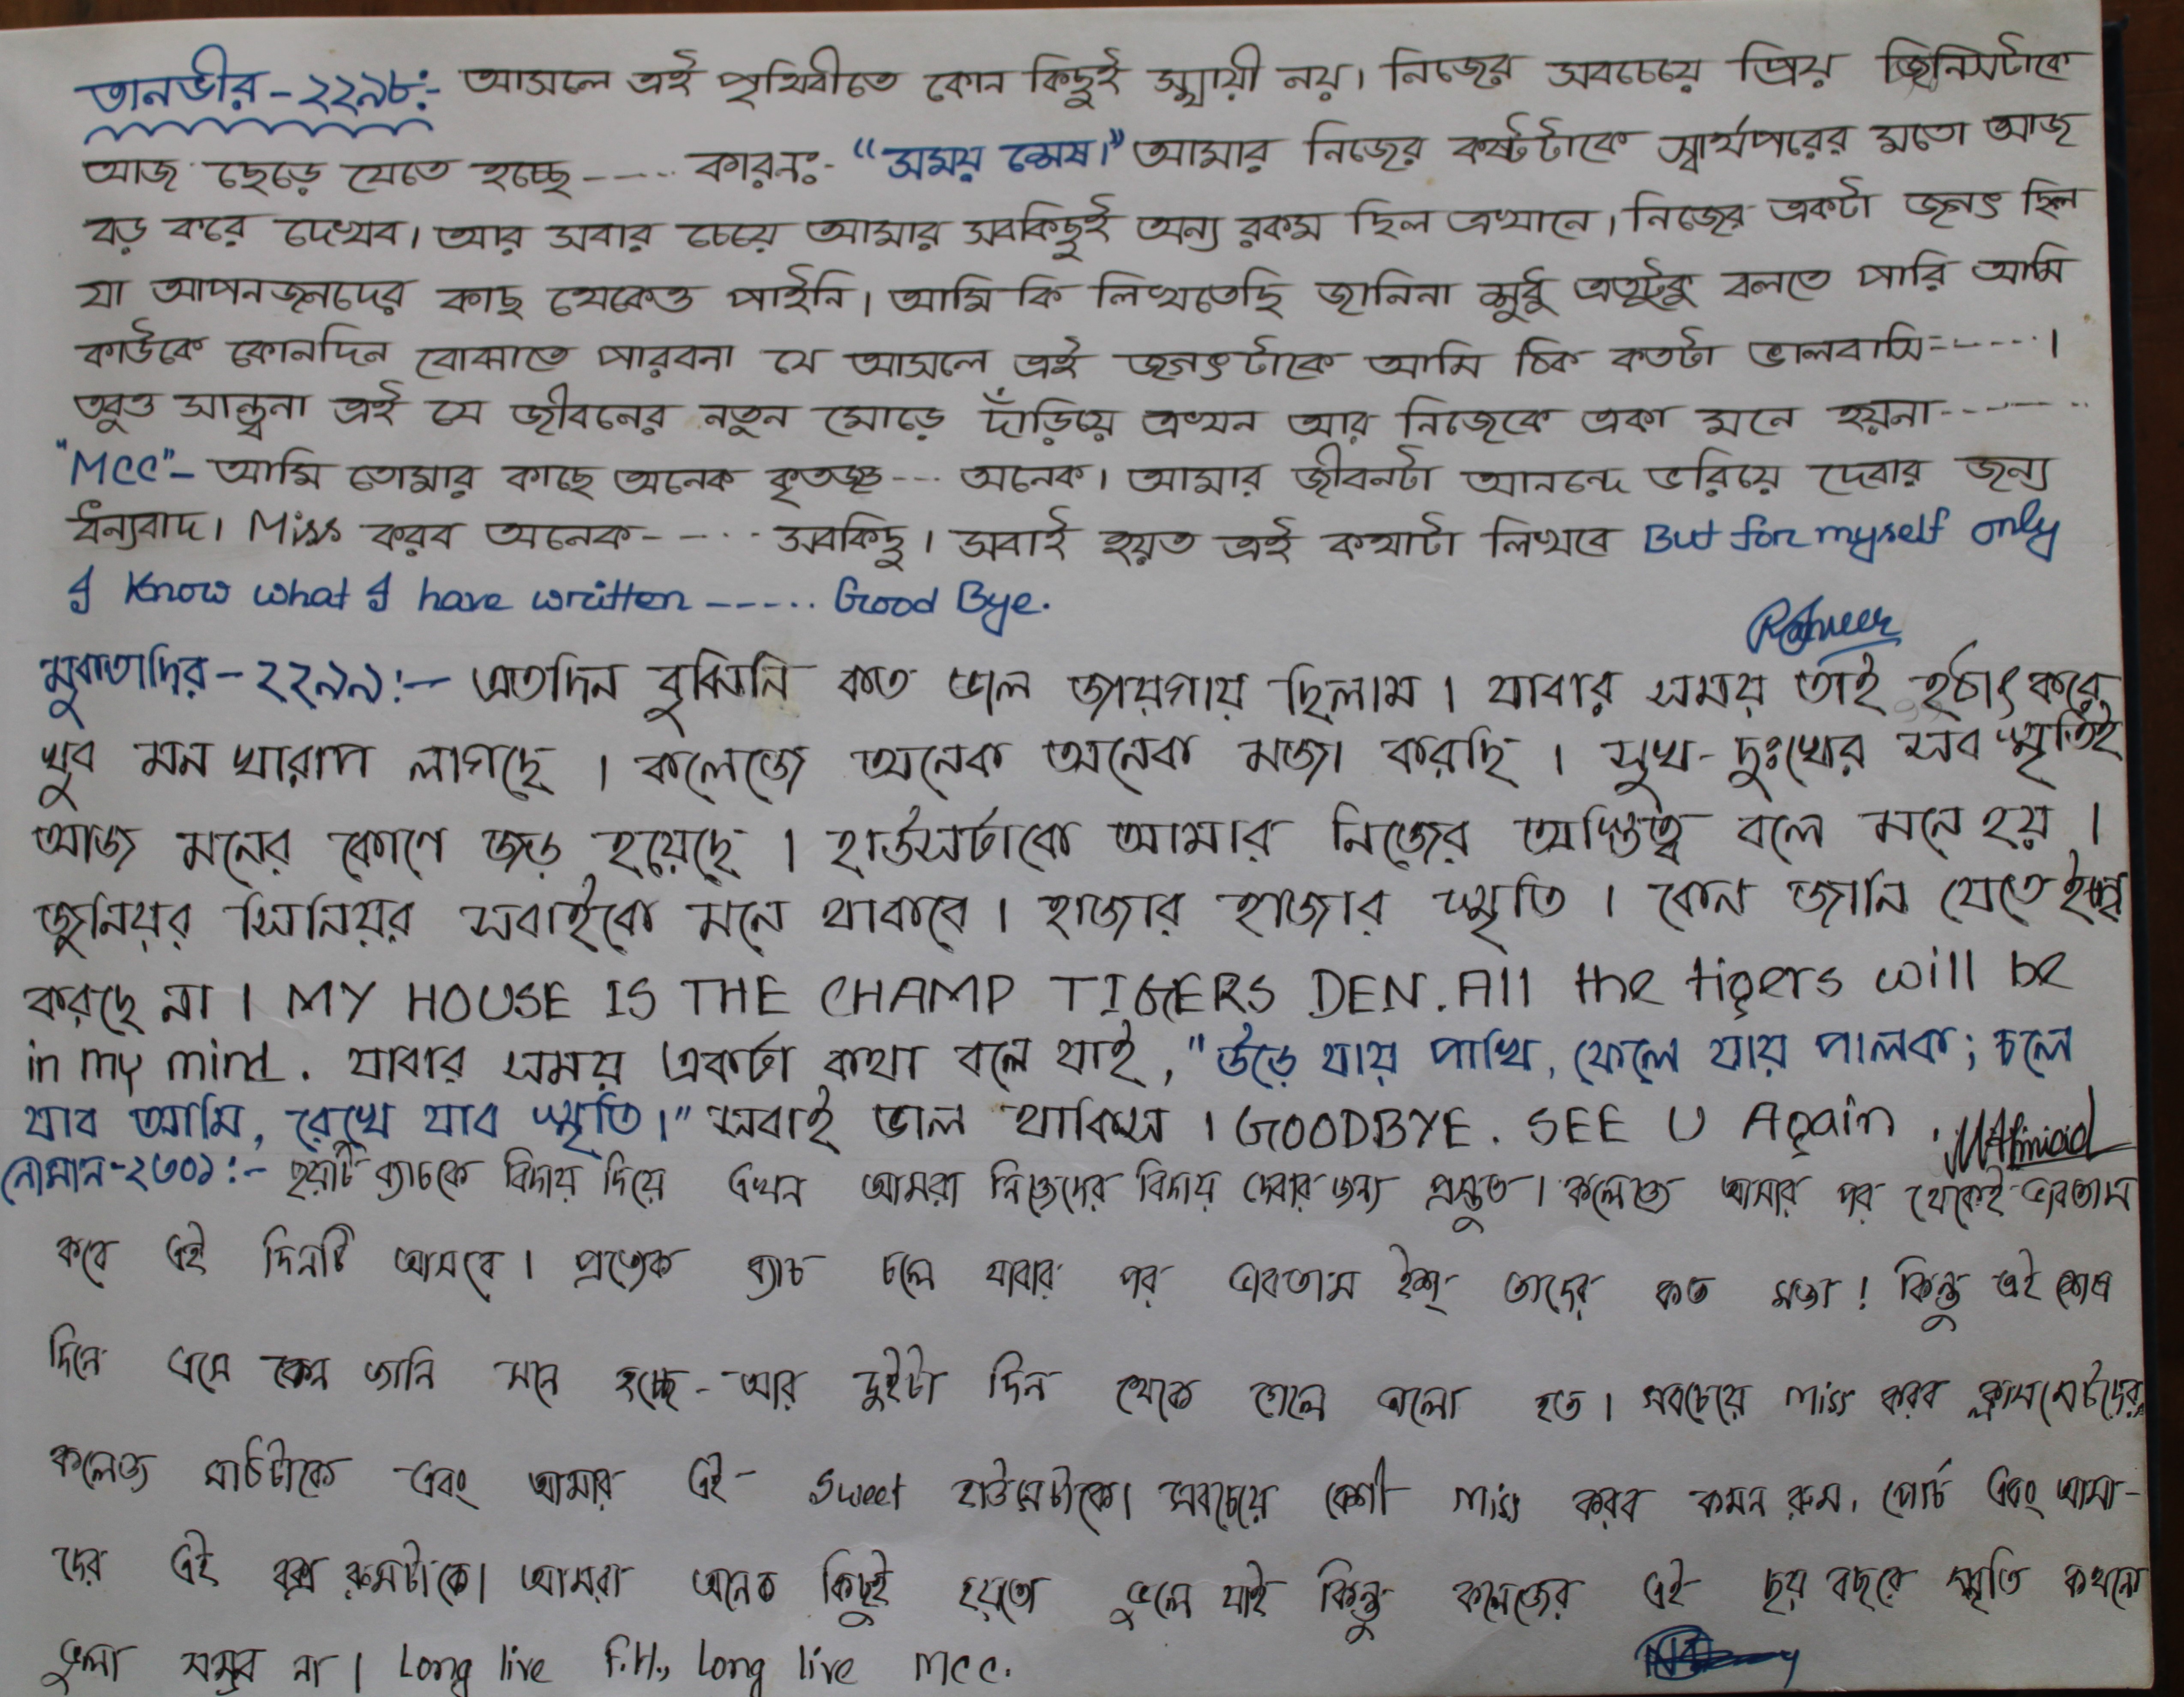 তানভীর-২২৯৮:- আসলে এই পৃথিবীতে কোন কিছুই স্থায়ী নয়। নিজের সবচেয়ে প্রিয় জিনিসটাকে
আজ ছেড়ে যেতে হচ্ছে----.. কারনঃ- "সময় শেষ।" আমার নিজের কষ্টটাকে স্বার্থপরের মতো আজ
বড় করে দেখব। আর সবার চেয়ে আমার সবকিছুই অন্য রকম ছিল এখানে। নিজের একটা জগৎ ছিল
যা আপনজনদের কাছ থেকেও পাইনি। আমি কি লিখতেছি জানিনা শুধু এতটুকু বলতে পারি আমি
কাউকে কোনদিন বোঝাতে পারবনা যে আসলে এই জগৎটাকে আমি ঠিক কতটা ভালবাসি-----..।
তবুও সান্ত্বনা এই যে জীবনের নতুন মোড়ে দাঁড়িয়ে এখন আর নিজেকে একা মনে হয়না-------
"MCC"- আমি তোমার কাছে অনেক কৃতজ্ঞ--- অনেক। আমার জীবনটা আনন্দে ভরিয়ে দেবার জন্য
ধন্যবাদ। Miss করব অনেক----.. সবকিছু। সবাই হয়ত এই কথাটা লিখবে But for myself only
I Know what I have written -----.. Good Bye.
মুকতাদির-২২৯৯:- এতদিন বুঝিনি কত ভাল জায়গায় ছিলাম। যাবার সময় তাই হঠাৎ করে
খুব মন খারাপ লাগছে। কলেজে অনেক অনেক মজা করছি। সুখ-দুঃখের সব স্মৃতিই
আজ মনের কোণে জড় হয়েছে। হাউসটাকে আমার নিজের অস্তিত্ব বলে মনে হয়।
জুনিয়র সিনিয়র সবাইকে মনে থাকবে। হাজার হাজার স্মৃতি। কেন জানি যেতে ইচ্ছে
করছে না। MY HOUSE IS THE CHAMP TIGERS DEN. All the tigers will be
in my mind. যাবার সময় একটা কথা বলে যাই, "উড়ে যায় পাখি, ফেলে যায় পালক; চলে
যাব আমি, রেখে যাব স্মৃতি।" সবাই ভাল থাকিস। GOODBYE. SEE U Again.
নোমান-২৩০১:- ছয়টি ব্যাচকে বিদায় দিয়ে এখন আমরা নিজেদের বিদায় দেবার জন্য প্রস্তুত। কলেজে আসার পর থেকেই ভাবতাম
কবে এই দিনটি আসবে। প্রত্যেক ব্যাচ চলে যাবার পর ভাবতাম ইশ্ তাদের কত মজা! কিন্তু এই শেষ
দিনে এসে কেন জানি মনে হচ্ছে- আর দুইটা দিন থেকে গেলে ভালো হত। সবচেয়ে miss করব ক্লাসমেটদের,
কলেজ মাঠটাকে এবং আমার এই sweet হাউসটাকে। সবচেয়ে বেশী miss করব কমন রুম, পোর্চ এবং আমা-
দের এই বক্স রুমটাকে। আমরা অনেক কিছুই হয়তো ভুলে যাই কিন্তু কলেজের এই ছয় বছরে স্মৃতি কখনো
ভুলা সম্ভব না। Long live F.H., Long live MCC.